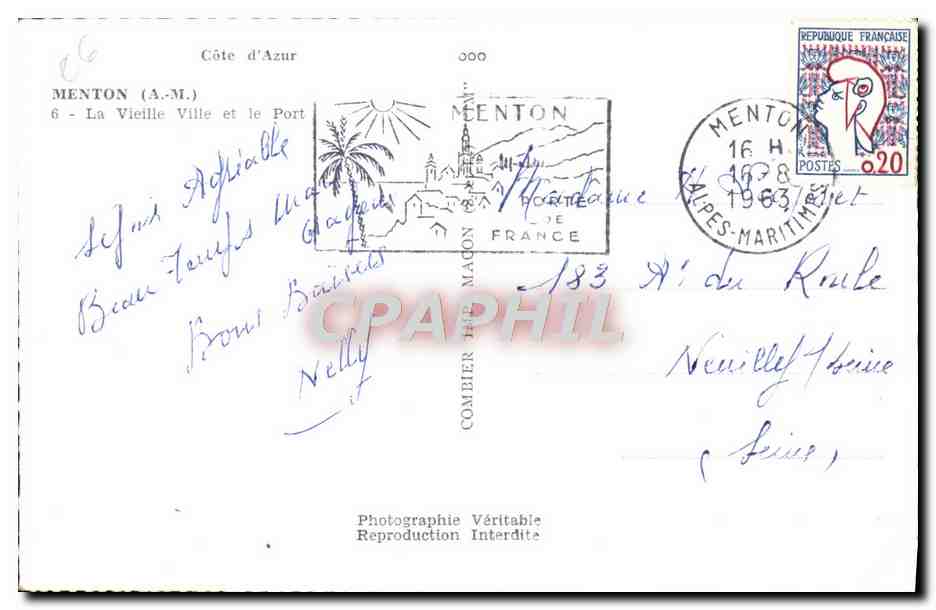 Côte d'Azur
MENTON (A.-M.)
6 - La Vieille Ville et le Port
Séjour Agréable
Beau Temps Mais
Orageux
Bons Baisers
Nelly
COMBIER IMP. MACON
MENTON
PERLE
DE
FRANCE
MENTON
16 H
16-8
1963
ALPES-MARITIMES
REPUBLIQUE FRANÇAISE
POSTES
0.20
Madame
183 Av. du Roule
Neuilly s/Seine
(Seine)
Photographie Véritable
Reproduction Interdite
CPAPHIL